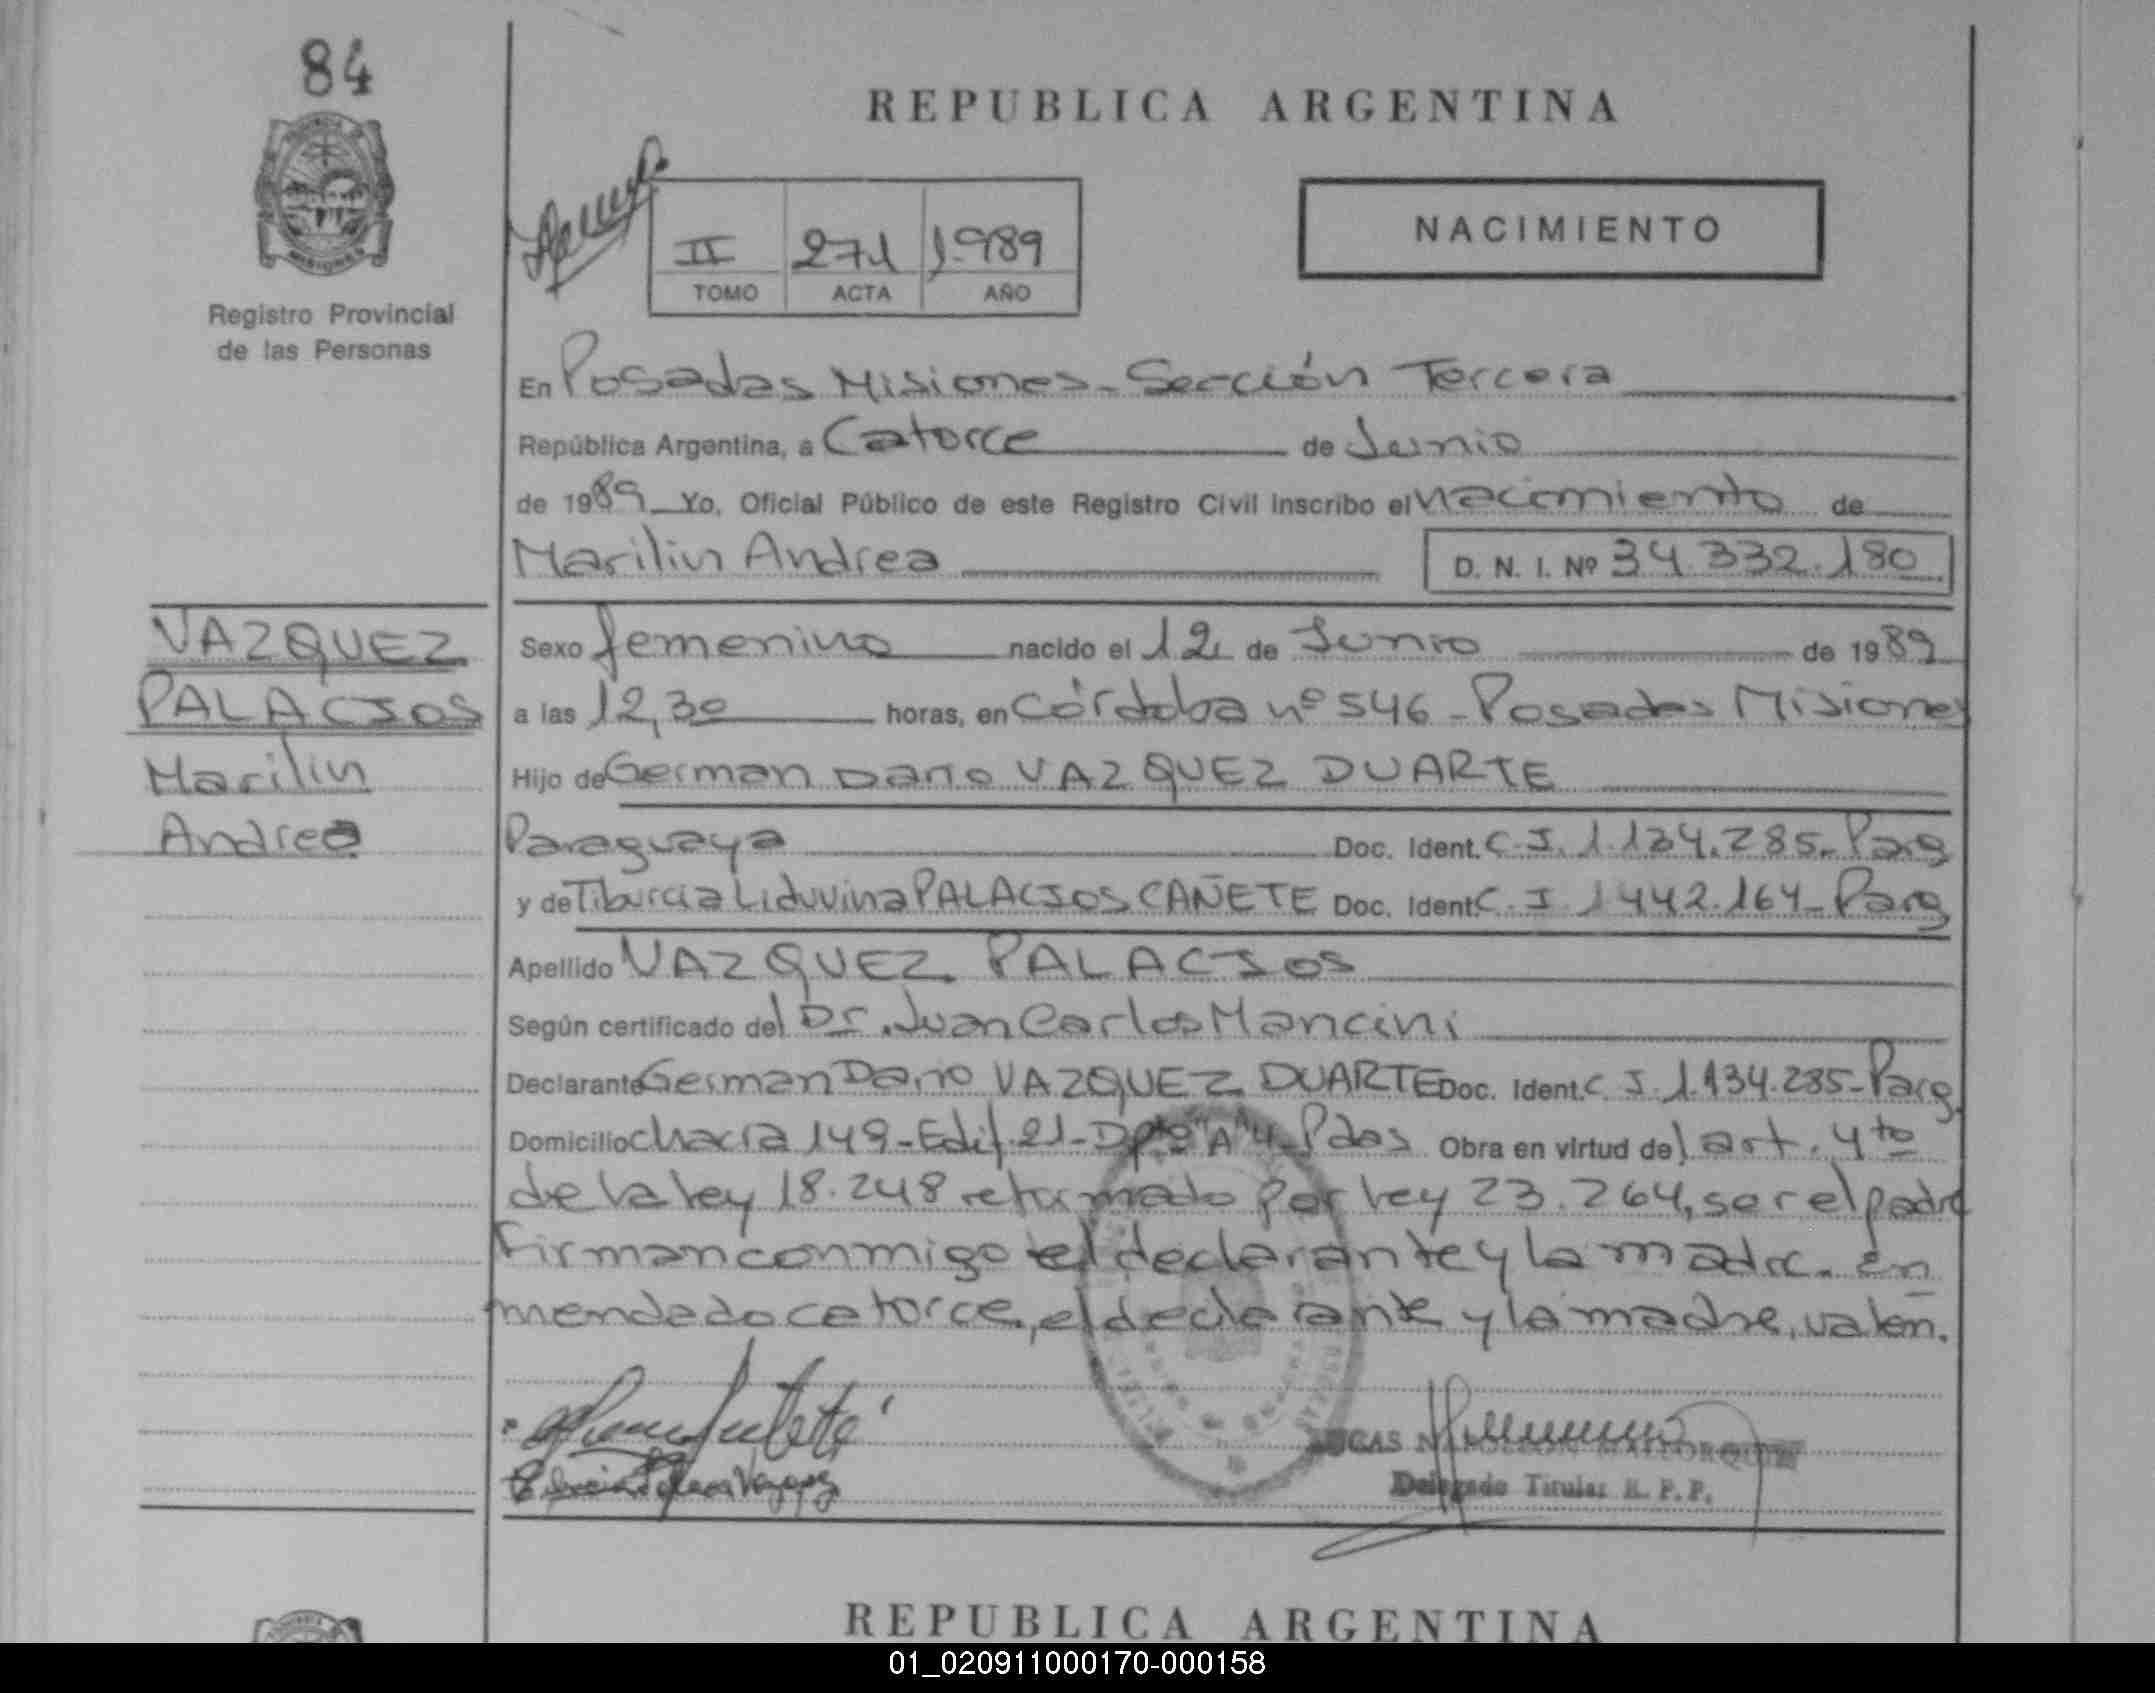 84
REPUBLICA ARGENTINA
MISIONES
Registro Provincial
de las Personas
II 271 1.989
TOMO ACTA AÑO
NACIMIENTO
En Posadas Misiones - Sección Tercera
República Argentina, a Catorce de Junio
de 1989 Yo, Oficial Público de este Registro Civil inscribo el nacimiento de
Marilin Andrea D. N. I. Nº 34.332.180
VAZQUEZ
PALACIOS
Marilin
Andrea
Sexo femenino nacido el 12 de Junio de 1989
a las 12,30 horas, en Córdoba nº 546 - Posadas Misiones
Hijo de German Dario VAZQUEZ DUARTE
Paraguaya Doc. Ident. C.I. 1.134.285 - Parg
y de Tiburcia Liduvina PALACIOS CAÑETE Doc. Ident. C.I. 1442.164 - Parg
Apellido VAZQUEZ PALACIOS
Según certificado del Dr. Juan Carlos Mancini
Declarante German Dario VAZQUEZ DUARTE Doc. Ident. C I. 1.134.285 - Parg.
Domicilio chacra 149 - Edif. 21 - Dpto "A" 4 - Pdas Obra en virtud del art. 4to
de la ley 18.248 reformado por ley 23.264, ser el padre
Firman conmigo el declarante y la madre. En
mendado catorce, el declarante y la madre, valen.
Delegado Titular R. P. P.
REPUBLICA ARGENTINA
01_020911000170-000158